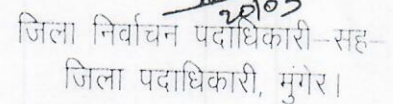 20/03
जिला निर्वाचन पदाधिकारी-सह-
जिला पदाधिकारी, मुंगेर।